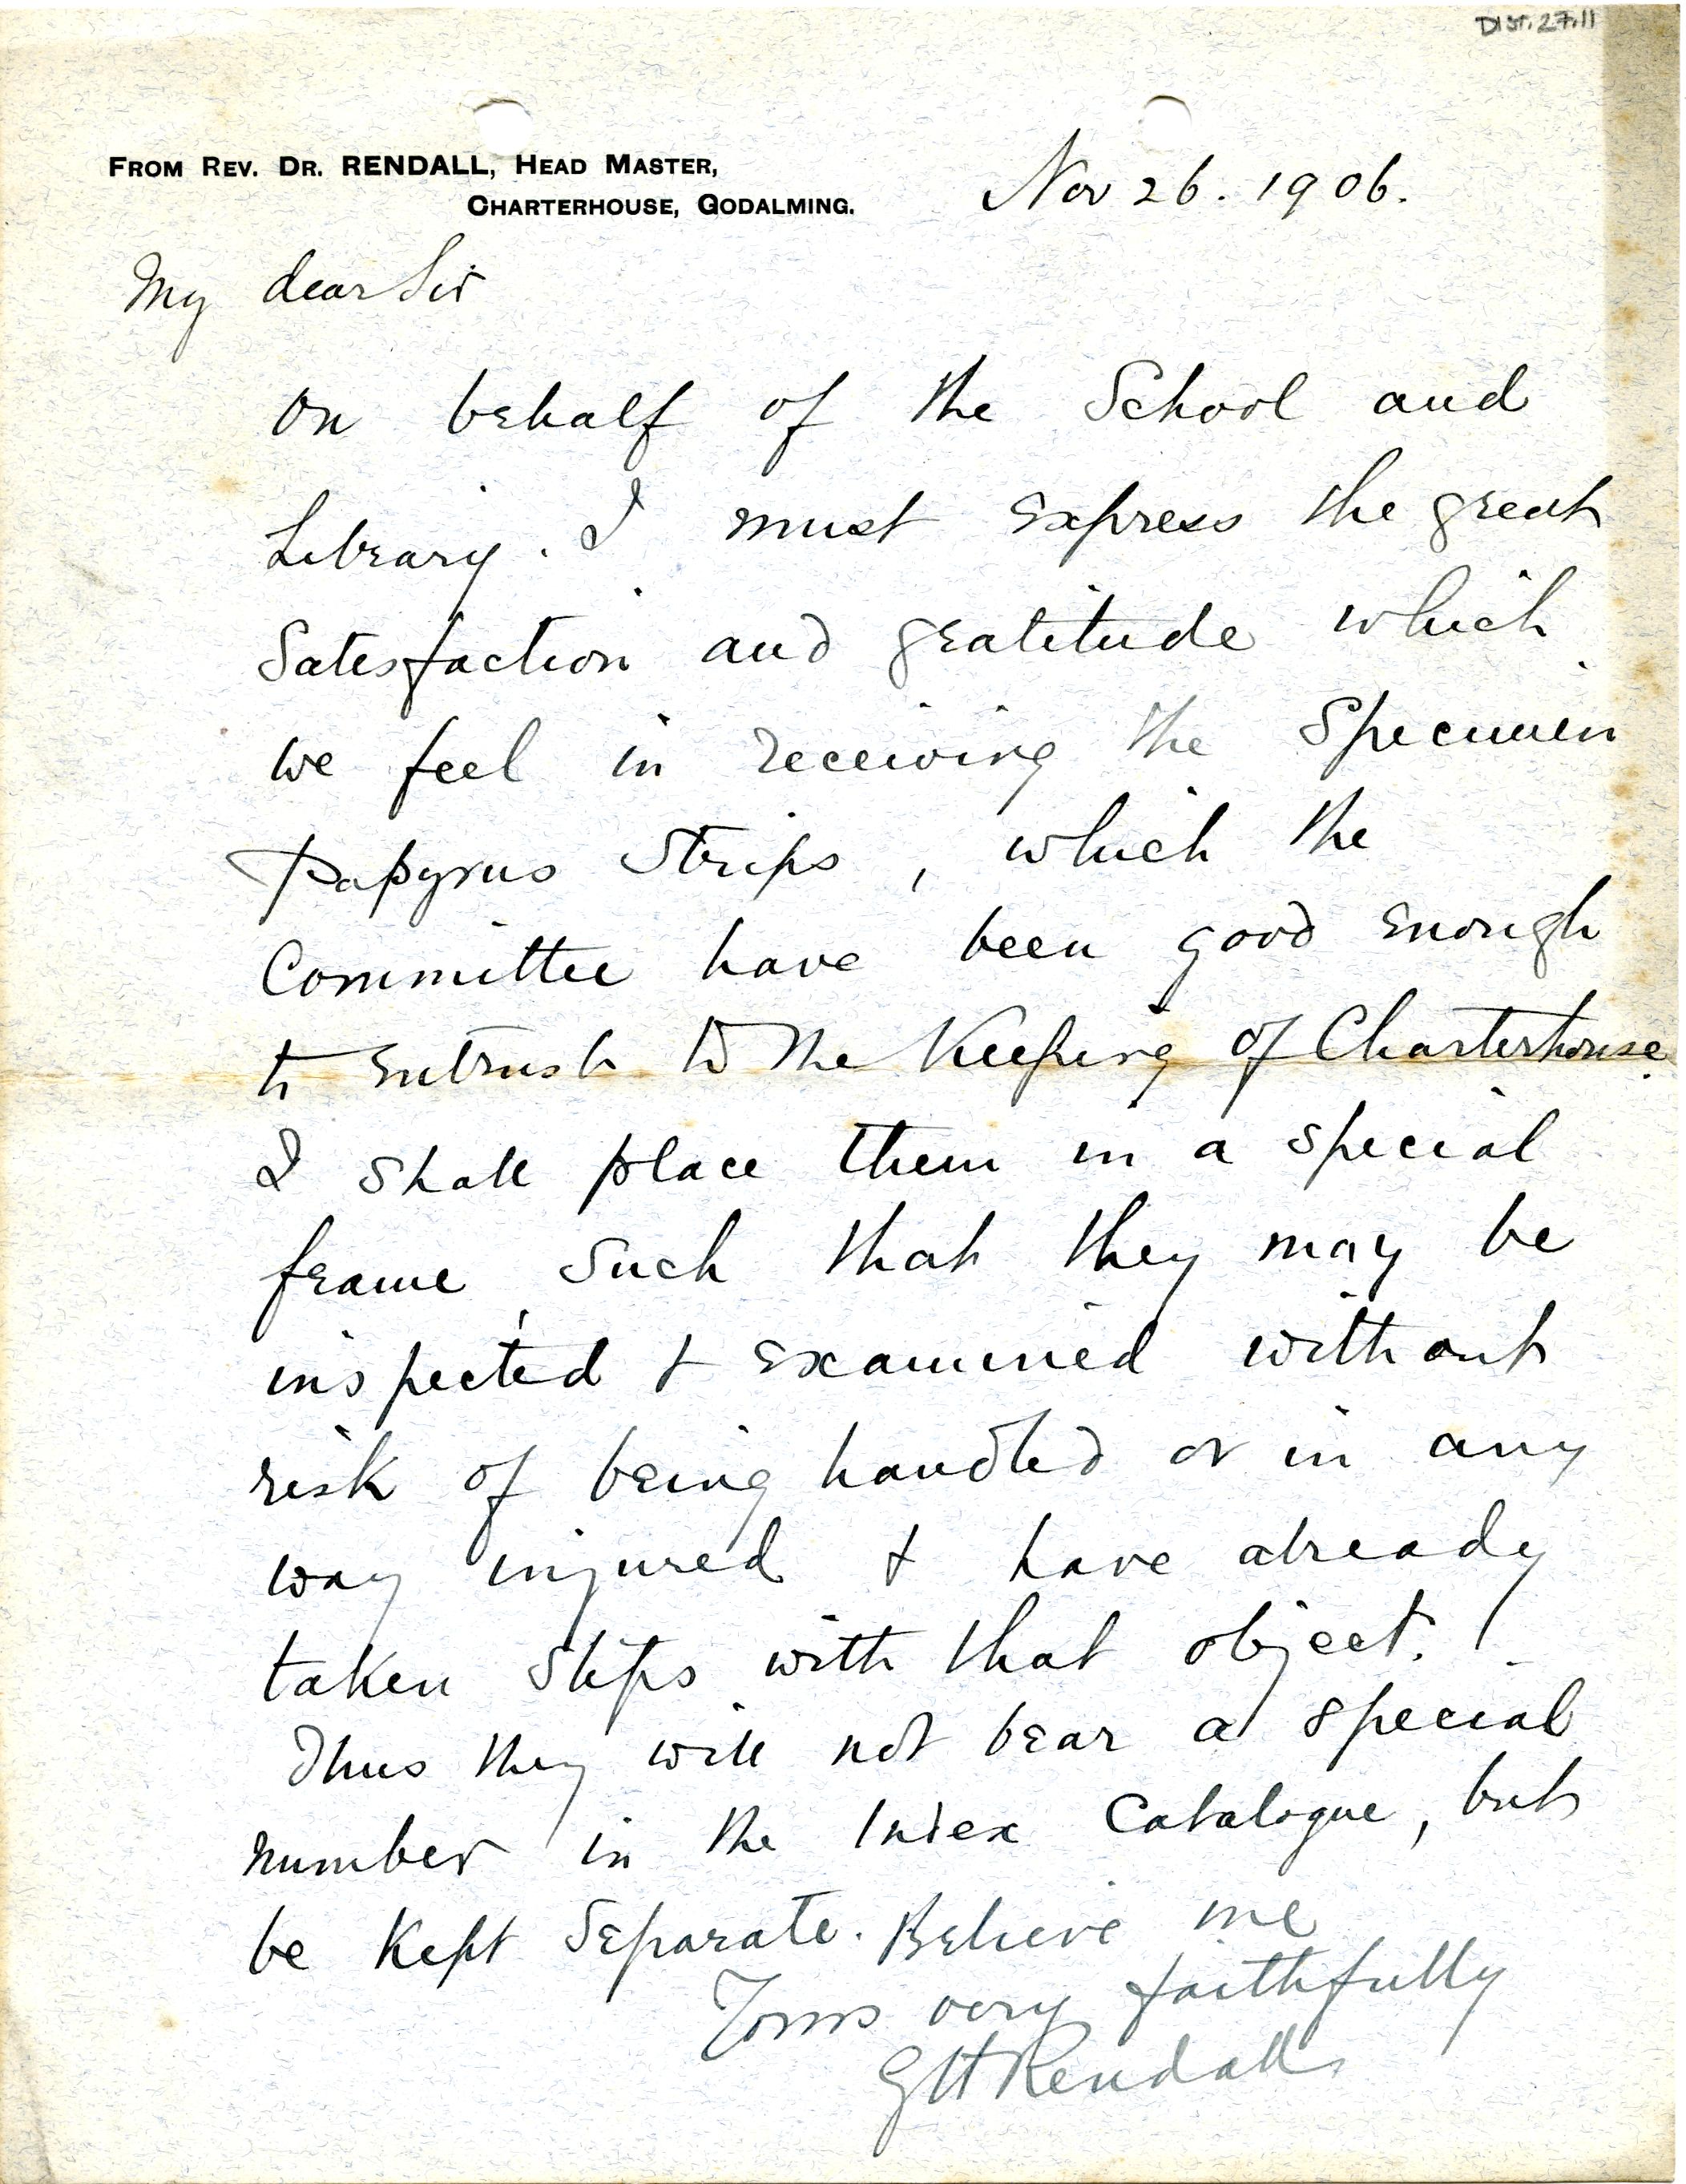 DIST.27.11
FROM REV. DR. RENDALL, HEAD MASTER,
CHARTERHOUSE, GODALMING.
Nov 26. 1906.
My dear Sir
On behalf of the School and
Library. I must express the great
Satisfaction and gratitude which
we feel in receiving the Specimen
Papyrus Strips, which the
Committee have been good enough
to entrust to the Keeping of Charterhouse.
I shall place them in a special
frame, such that they may be
inspected & examined without
risk of being handled or in any
way injured & have already
taken steps with that object.
Thus they will not bear a special
number in the Index Catalogue, but
be kept separate. Believe me
Yours very faithfully
GH Rendall